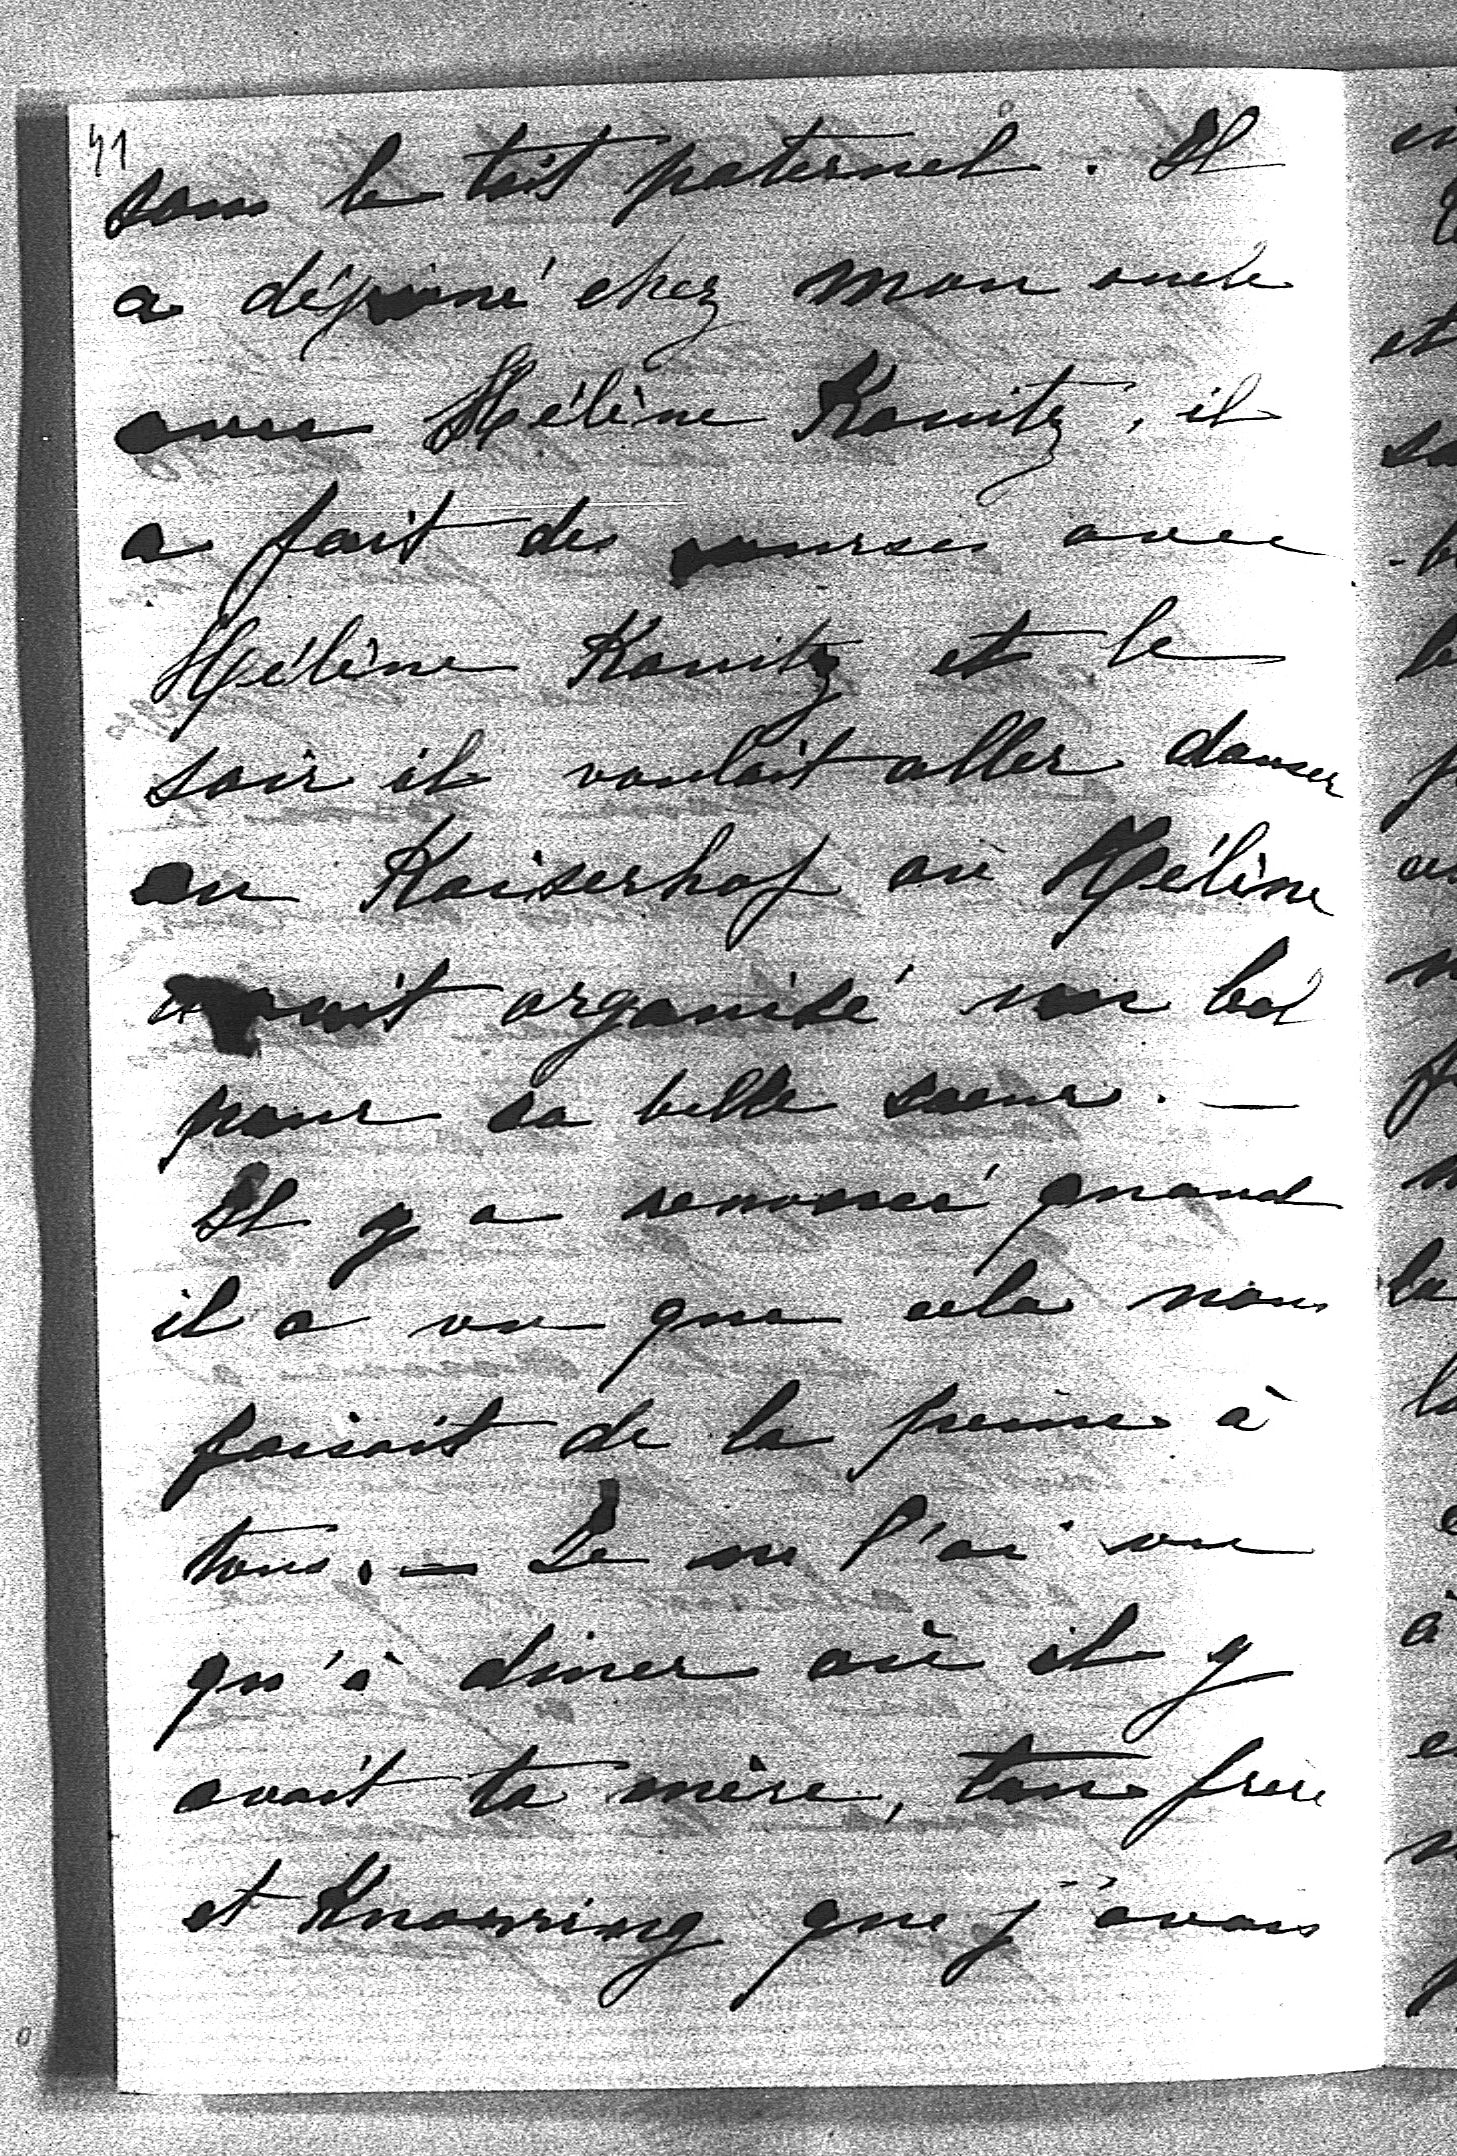 41
sous le toit paternel. Il
a déjeuné chez mon oncle
avec Hélène Kanitz, il
a fait des courses avec
Hélène Kanitz et le
soir il voulait aller danser
au Kaiserhof où Hélène
avait organisé un bal
pour sa belle soeur. —
Il y a renoncé quand
il a vu que cela nous
faisait de la peine à
tous. — Je ne l'ai vu
qu'à diner où il y
avait ta mère, ton frère
et Knorring que j'avais